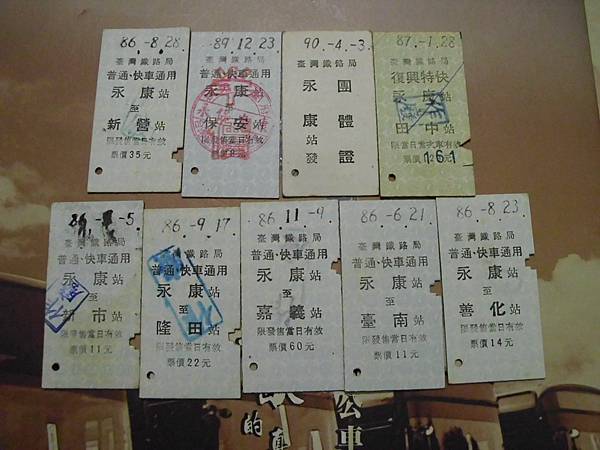 86.-8.28
臺灣鐵路局
普通、快車通用
永康站
至
新營站
限發售當日有效
票價35元
89.12.23
臺灣鐵路局
普通、快車通用
永康站
至
保安站
限發售當日有效
90.-4.-3
臺灣鐵路局
永康站發
團體證
87.-1.28
臺灣鐵路局
復興特快
永康站
田中站
161
86.
-5
臺灣鐵路局
普通、快車通用
永康站
至
新市站
限發售當日有效
票價11元
86.-9.17
臺灣鐵路局
普通、快車通用
永康站
至
隆田站
限發售當日有效
票價22元
86.11.-9
臺灣鐵路局
普通、快車通用
永康站
至
嘉義站
限發售當日有效
票價60元
86.-6.21
臺灣鐵路局
普通、快車通用
永康站
至
臺南站
限發售當日有效
票價11元
86.-8.23
臺灣鐵路局
普通、快車通用
永康站
至
善化站
限發售當日有效
票價14元
公車
的真